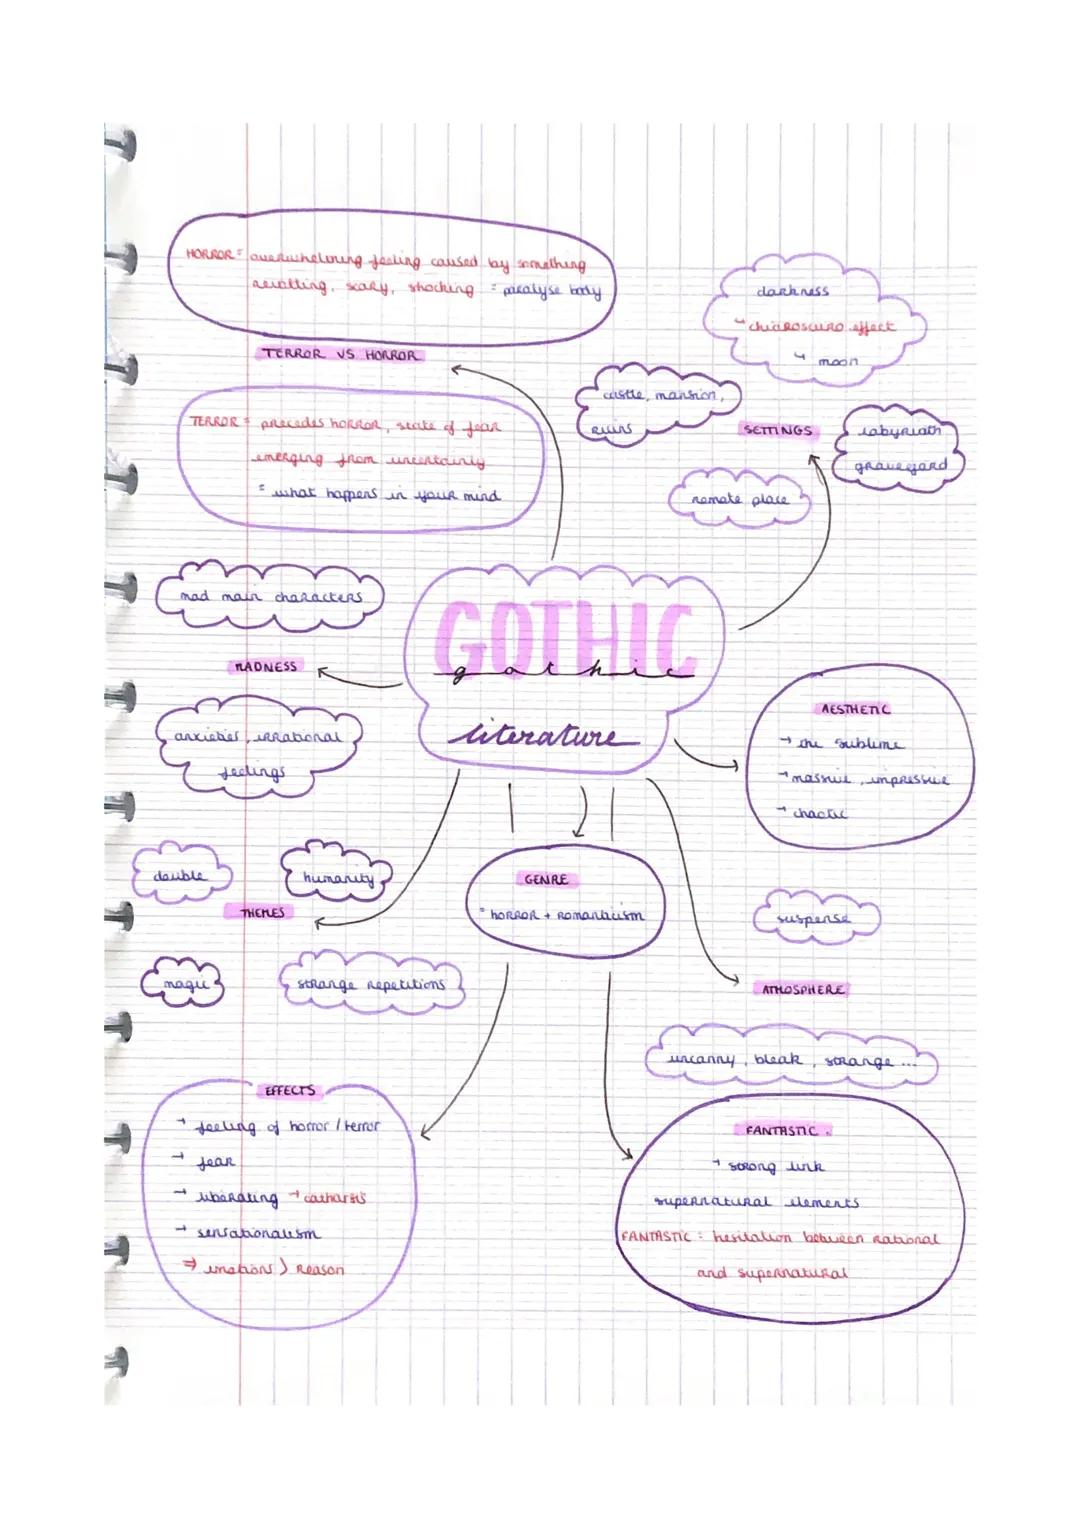 HORROR = overwhelming feeling caused by something
revolting, scary, shocking = paralyse body
TERROR VS HORROR
TERROR = precedes horror, state of fear
emerging from uncertainty
= what happens in your mind
darkness
↳ chiaroscuro effect
↳ moon
castle, mansion,
ruins
SETTINGS
labyrinth
graveyard
remote place
mad main characters
MADNESS
anxieties, irrational
feelings
GOTHIC
gothic
literature
AESTHETIC
→ the sublime
→ massive, impressive
→ chaotic
double
humanity
THEMES
magic
strange repetitions
GENRE
= horror + romanticism
suspense
ATMOSPHERE
uncanny, bleak, strange ...
EFFECTS
→ feeling of horror / terror
→ fear
→ liberating → catharsis
→ sensationalism
⇒ emotions > reason
FANTASTIC.
→ strong link
supernatural elements
FANTASTIC = hesitation between rational
and supernatural